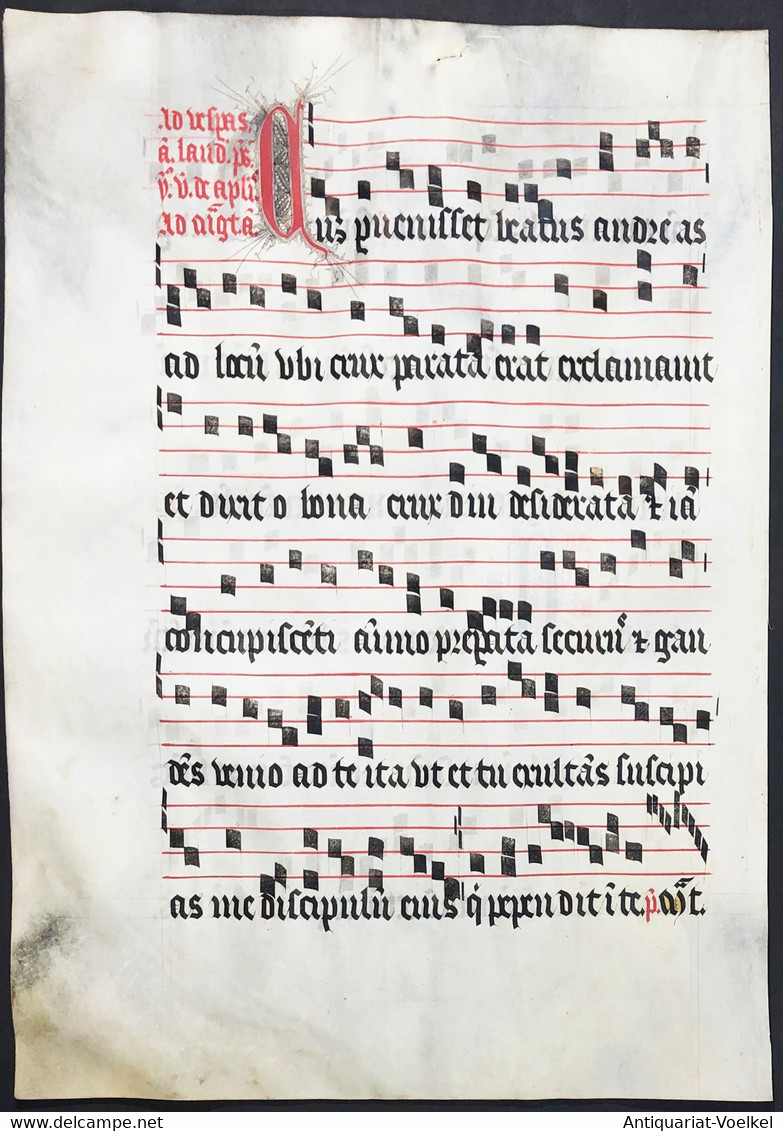 Ad vesp̃as.
ã. laud. ps̃.
ỹ. ṽ. de apl̃i
Ad mãgt̃a.
Cuꝫ puenisset beatus andreas
ad locũ vbi crux parata erat exclamauit
et dixit o bona crux diu desiderata ⁊ iã
concupiscẽti aĩmo prepata securꝰ ⁊ gau
dẽs venio ad te ita vt et tu exultãs suscipi
as me discipulũ eius q̇ pependit ĩ te. p̃. mãt.
Antiquariat-Voelkel